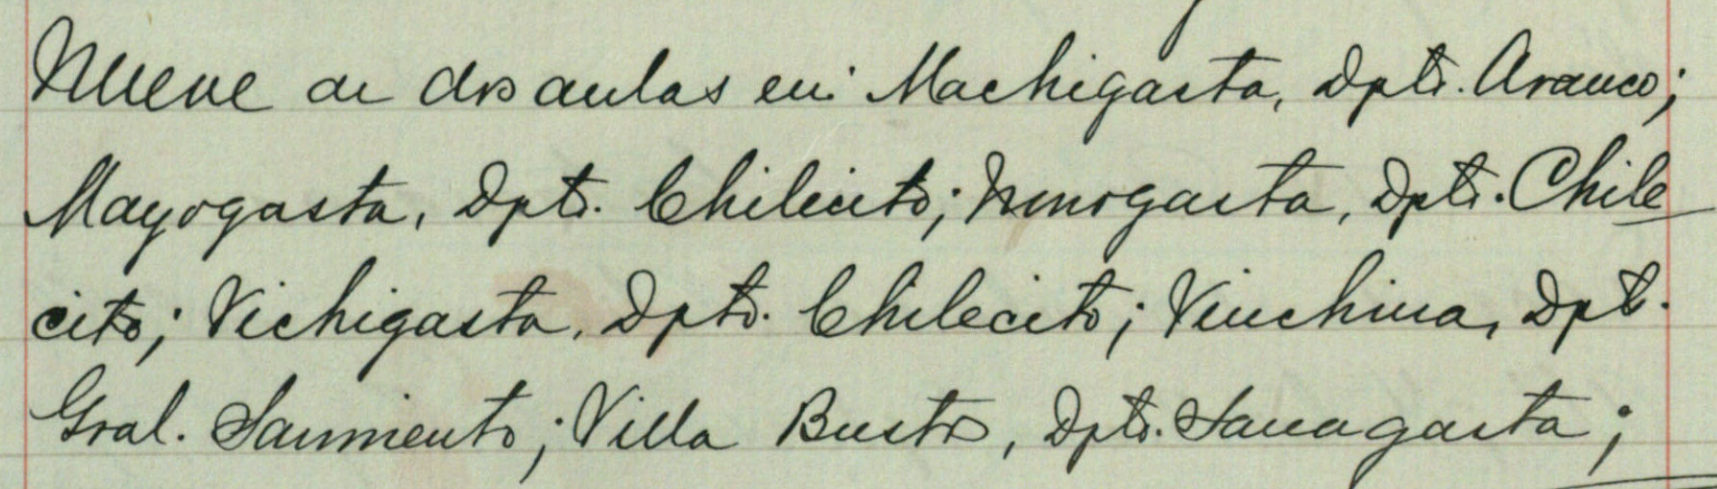 Nueve de dos aulas en: Machigasta, Dpto. Arauco;
Mayogasta, Dpto. Chilecito; Nonogasta, Dpto. Chile
cito; Vichigasta, Dpto. Chilecito; Vinchina, Dpto.
Gral. Sarmiento; Villa Bustos, Dpto. Sanagasta;